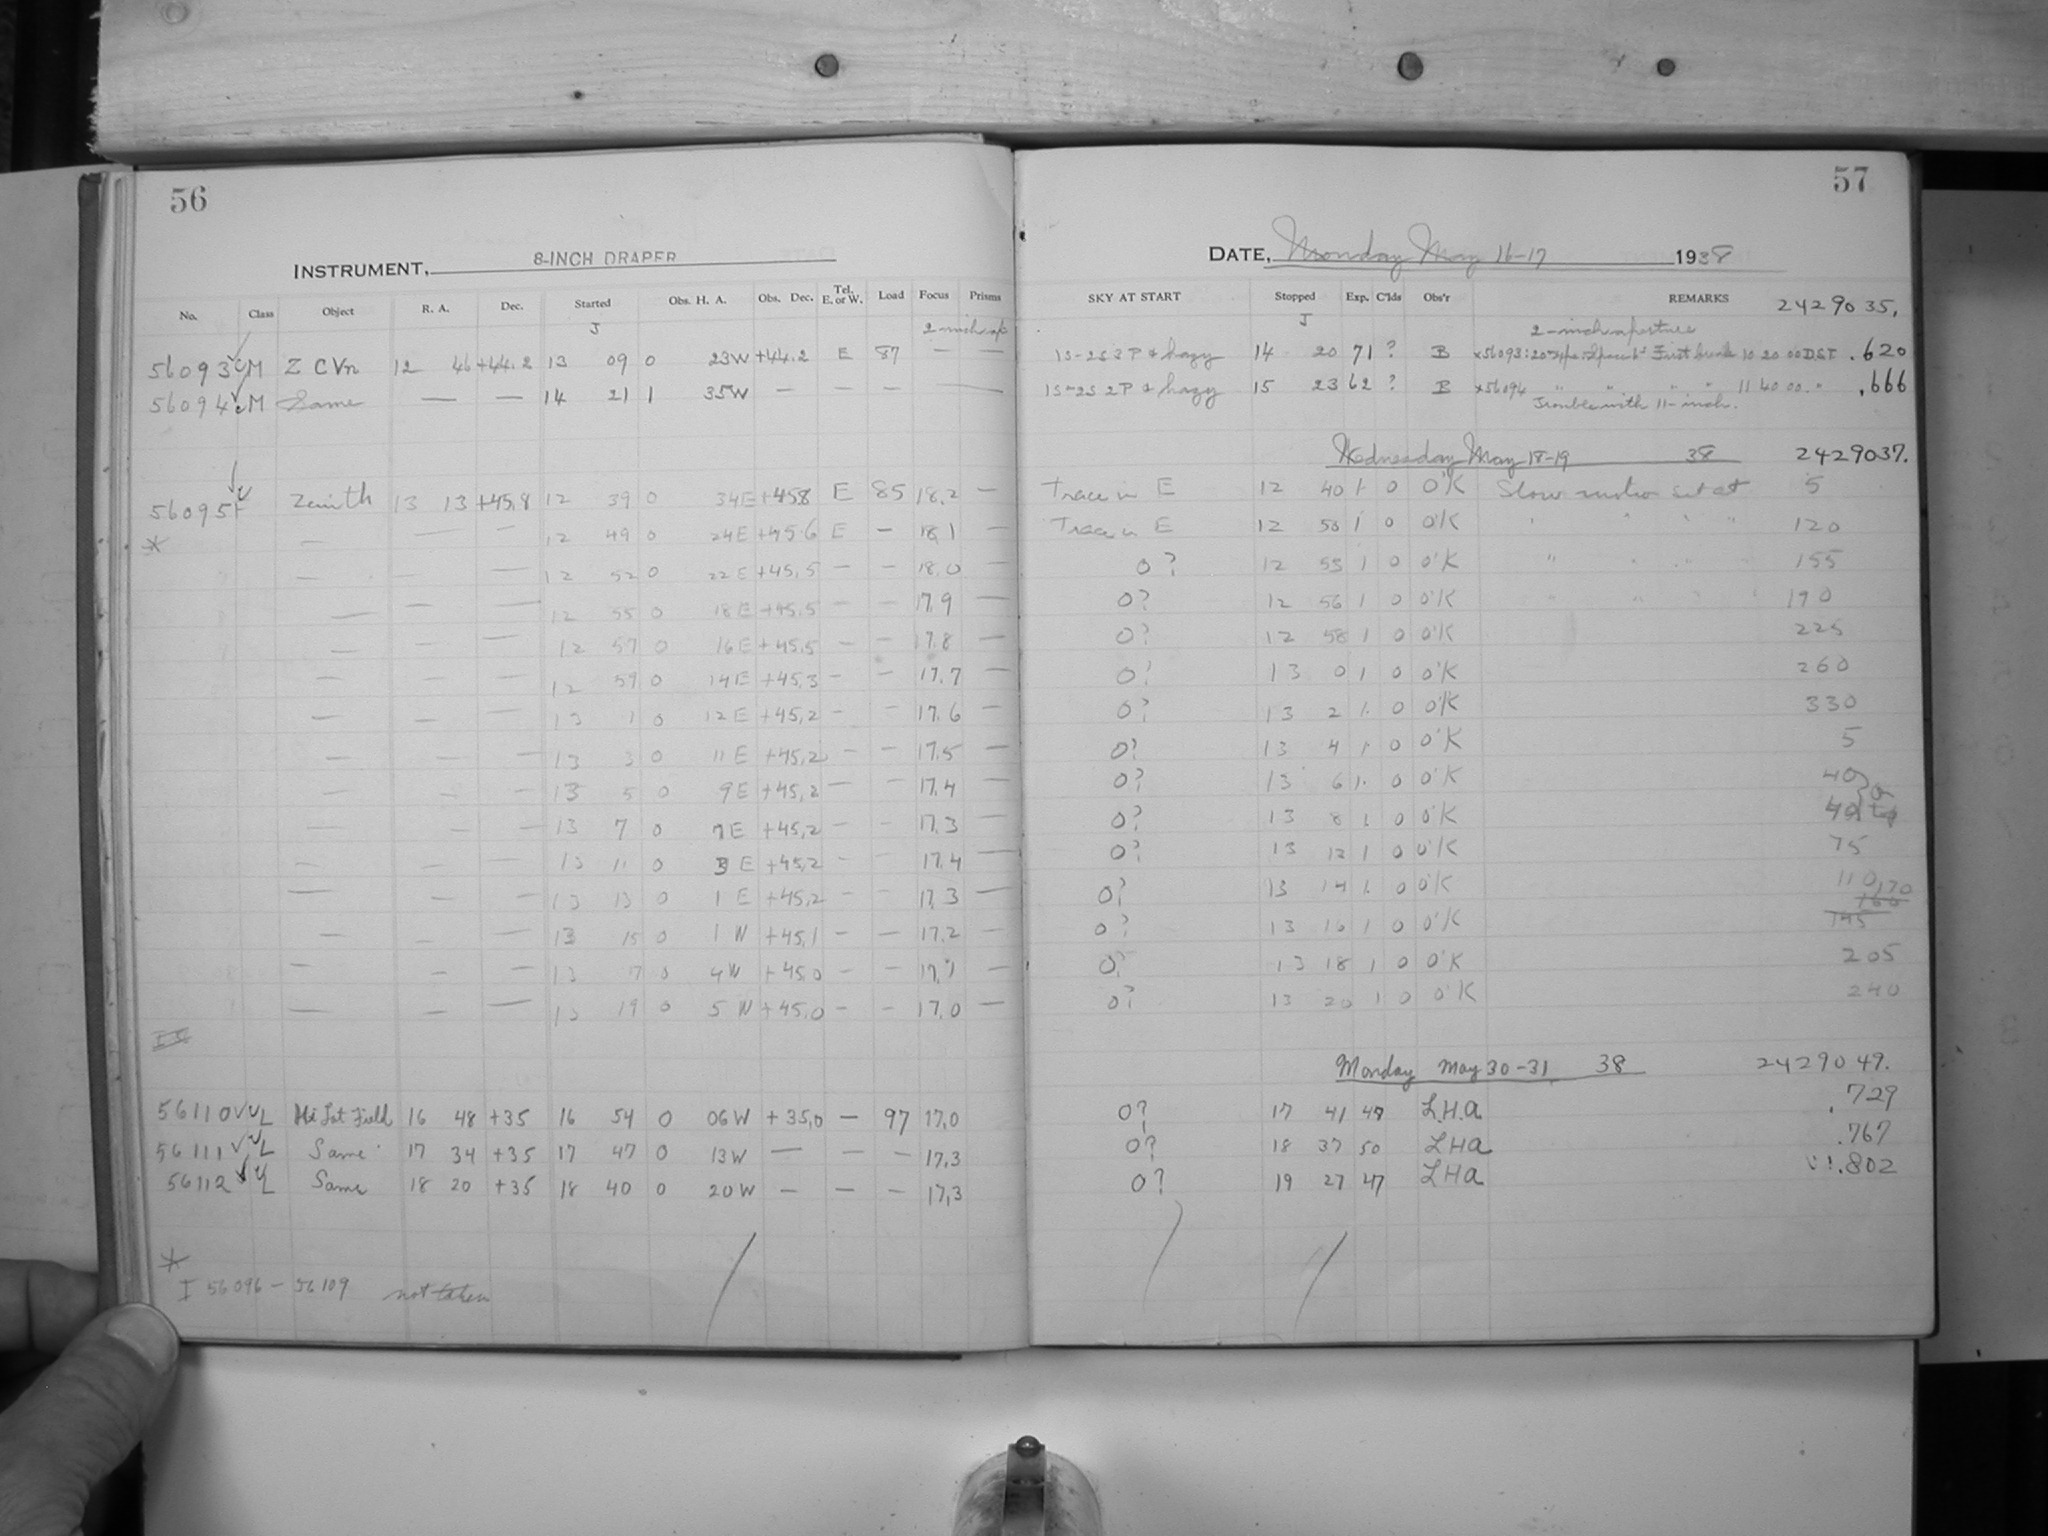 56
INSTRUMENT, 8-INCH DRAPER
No. Class Object R. A. Dec. Started Obs. H. A. Obs. Dec. Tel. E. or W. Load Focus Prisms
J 2-inch ap
56093 M Z CVn 12 46 +44.2 13 09 0 23W +44.2 E 87 — —
56094 M Same — — 14 21 1 35W — — — —
56095 F Zenith 13 13 +45.8 12 39 0 34E +45.8 E 85 18.2 —
* — — — 12 49 0 24E +45.6 E — 18.1 —
— — — 12 52 0 22E +45.5 — — 18.0 —
— — — 12 55 0 18E +45.5 — — 17.9 —
— — — 12 57 0 16E +45.5 — — 17.8 —
— — — 12 59 0 14E +45.3 — — 17.7 —
— — — 13 1 0 12E +45.2 — — 17.6 —
— — — 13 3 0 11E +45.2 — — 17.5 —
— — — 13 5 0 9E +45.2 — — 17.4 —
— — — 13 7 0 7E +45.2 — — 17.3 —
— — — 13 11 0 3E +45.2 — — 17.4 —
— — — 13 13 0 1E +45.2 — — 17.3 —
— — — 13 15 0 1W +45.1 — — 17.2 —
— — — 13 17 0 4W +45.0 — — 17.1 —
— — — 13 19 0 5W +45.0 — — 17.0 —
56110 L Mi Lat Field 16 48 +35 16 54 0 06W +35.0 — 97 17.0
56111 L Same 17 34 +35 17 47 0 13W — — — 17.3
56112 L Same 18 20 +35 18 40 0 20W — — — 17.3
*
I 56096 - 56109 not taken
57
DATE, Monday May 16-17 1938
SKY AT START Stopped Exp. C'lds Obs'r REMARKS 2429035.
J 2-inch aperture
1S-2S 3P & hazy 14 20 71 ? B x56093: First break 10 20 00 DST .620
1S-2S 2P & hazy 15 23 62 ? B x56094 " " " " 11 40 00 " .666
Trouble with 11-inch.
Wednesday May 18-19 38 2429037.
Trace in E 12 40 1 0 O'K Slow motion set at 5
Trace in E 12 50 1 0 O'K " " " " 120
0? 12 53 1 0 O'K " " " 155
0? 12 56 1 0 O'K " " " " 190
0? 12 58 1 0 O'K 225
0? 13 0 1 0 O'K 260
0? 13 2 1 0 O'K 330
0? 13 4 1 0 O'K 5
0? 13 6 1 0 O'K 40
0? 13 8 1 0 O'K 40
0? 13 12 1 0 O'K 75
0? 13 14 1 0 O'K 110
0? 13 16 1 0 O'K 145 160 170
0? 13 18 1 0 O'K 205
0? 13 20 1 0 O'K 240
Monday May 30-31 38 2429049.
0? 17 41 47 L.H.A .729
0? 18 37 50 LHA .767
0? 19 27 47 LHA .802